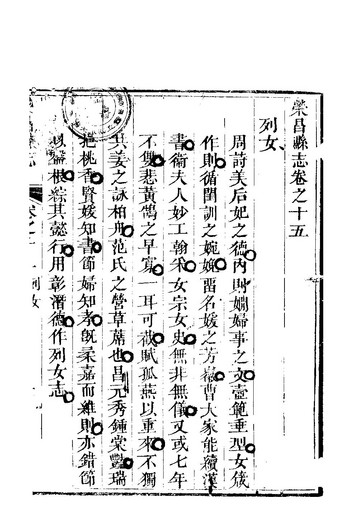 榮昌縣志卷之十五
列女
周詩美后妃之德內則嫺婦事之文壼範垂型女箴
作則循閨訓之婉嫕畱名媛之芳 曹大家能續漢
書衛夫人妙工翰 女宗女史無非無儀又或七年
不雙悲黃鵠之早寡一耳可 賦孤燕以重來不獨
共姜之詠柏舟范氏之營草葉也昌元秀鍾棠 瑞
挹桃香賢媛知書節婦知孝旣柔嘉而維則亦錯節
以 根綜其懿行用彰潛德作列女志